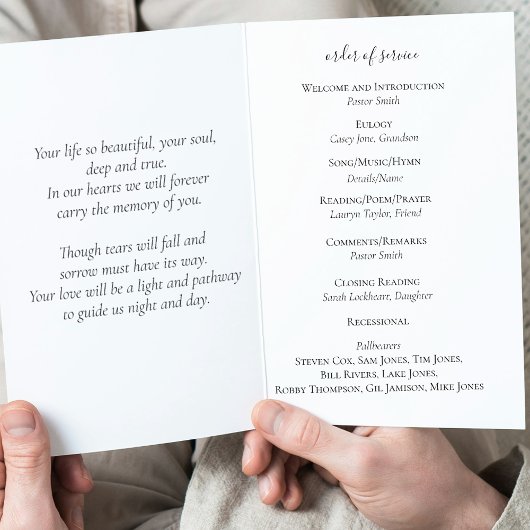 Your life so beautiful, your soul,
deep and true.
In our hearts we will forever
carry the memory of you.
Though tears will fall and
sorrow must have its way.
Your love will be a light and pathway
to guide us night and day.
order of service
Welcome and Introduction
Pastor Smith
Eulogy
Casey Jone, Grandson
Song/Music/Hymn
Details/Name
Reading/Poem/Prayer
Lauryn Taylor, Friend
Comments/Remarks
Pastor Smith
Closing Reading
Sarah Lockheart, Daughter
Recessional
Pallbearers
Steven Cox, Sam Jones, Tim Jones,
Bill Rivers, Lake Jones,
Robby Thompson, Gil Jamison, Mike Jones